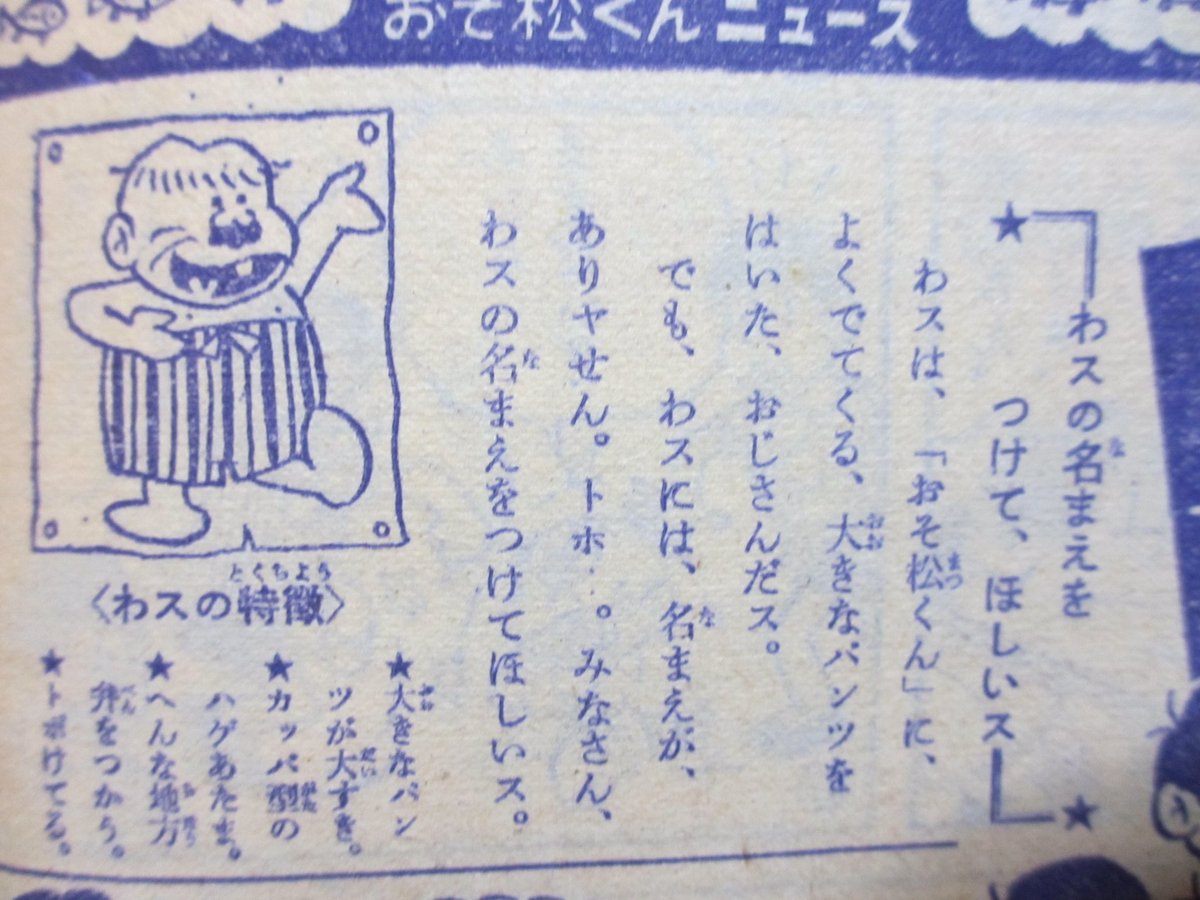 おそ松くんニュース
★わスの名まえを
つけて、ほしいス★
わスは、「おそ松くん」に、
よくでてくる、大きなパンツを
はいた、おじさんだス。
でも、わスには、名まえが、
ありヤせん。トホ‥。みなさん、
わスの名まえをつけてほしいス。
〈わスの特徴〉
★大きなパン
ツが大すき。
★カッパ型の
ハゲあたま。
★へんな地方
弁をつかう。
★トボけてる。